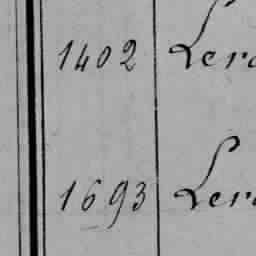 1402 Ler
1693 Ler